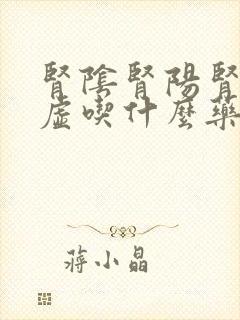 腎陰腎陽腎
虛喫什麼藥
蔣小晶